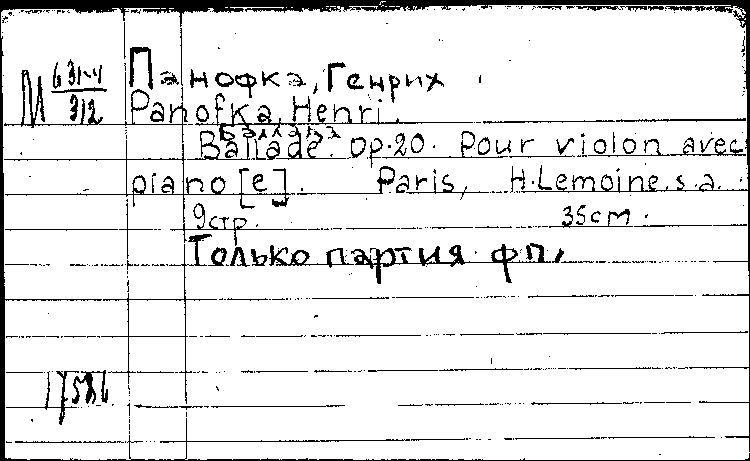 М 631-4
312
Панофка, Генрих.
Panofka, Henri.
Баллада
Ballade. Op.20. Pour violon avec
piano[e]. Paris, H.Lemoine.s.a.
9стр. 35см.
Только партия фп.